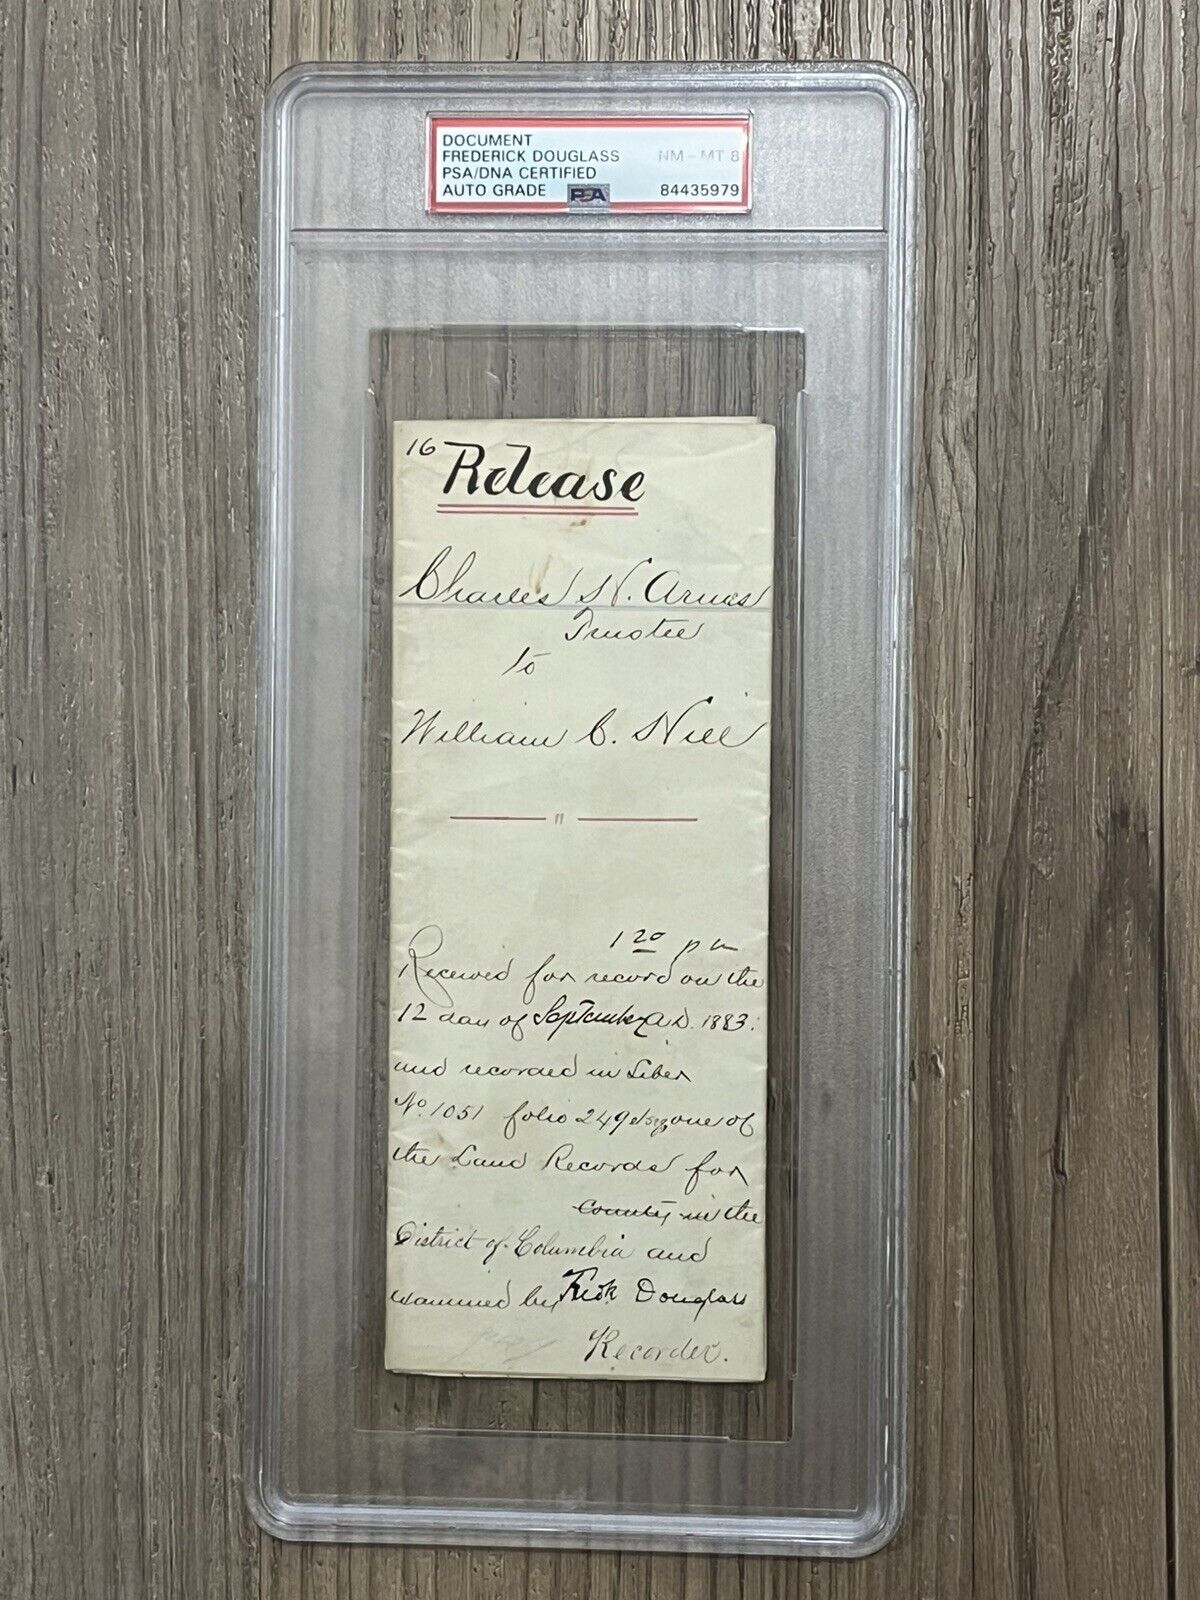 DOCUMENT
FREDERICK DOUGLASS NM-MT 8
PSA/DNA CERTIFIED
AUTO GRADE PSA 84435979
16 Release
Charles H. Armes
Trustee
to
William C. Hill
"
1 20 pm
Received for record on the
12 day of September A.D. 1883.
and recorded in Liber
No. 1051 folio 249 et seq one of
the Land Records for
county in the
District of Columbia and
examined by Fredk Douglass
Recorder.